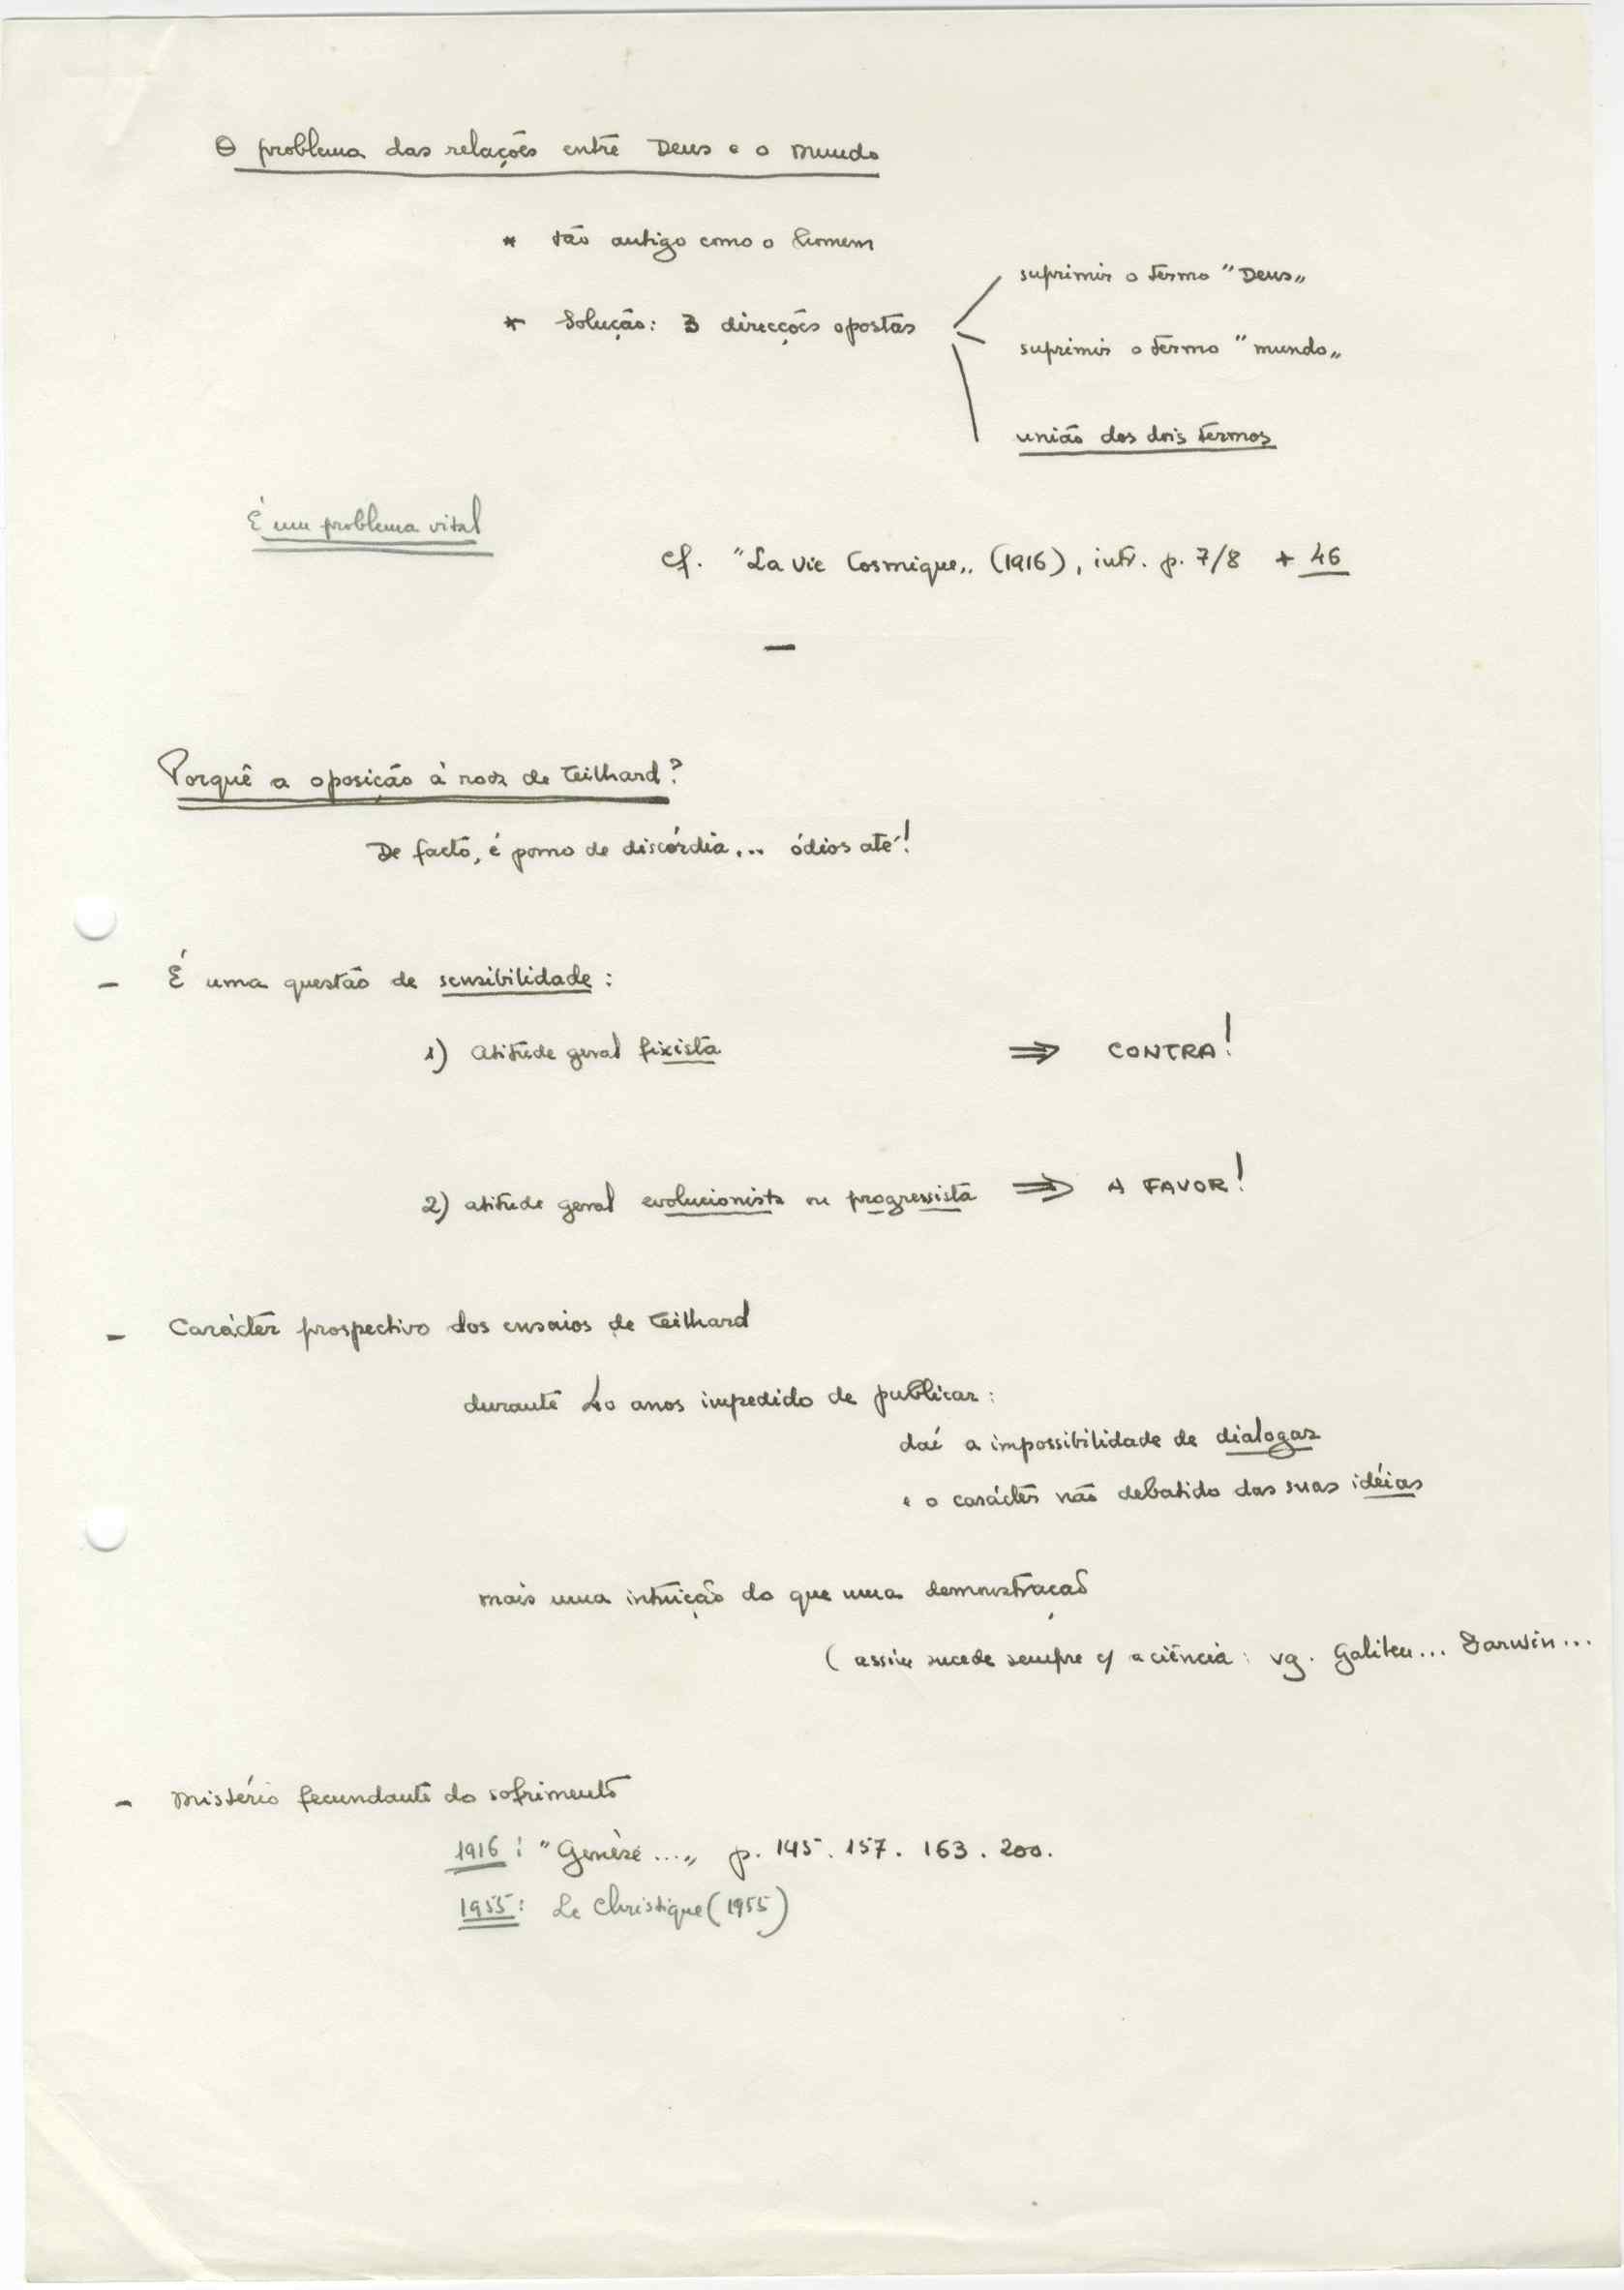 O problema das relações entre Deus e o mundo
* tão antigo como o homem
suprimir o termo "Deus"
* Solução: 3 direcções opostas
suprimir o termo "mundo"
união dos dois termos
É um problema vital
cf. "La Vie Cosmique" (1916), intr. p. 7/8 + 46
—
Porquê a oposição à de Teilhard?
De facto, é pomo de discórdia... ódios até!
- É uma questão de sensibilidade:
1) Atitude geral fixista ⇒ CONTRA!
2) atitude geral evolucionista ou progressista ⇒ A FAVOR!
- Carácter prospectivo dos ensaios de Teilhard
durante 40 anos impedido de publicar:
daí a impossibilidade de dialogar
e o carácter não debatido das suas idéias
mais uma intuição do que uma demonstração
(assim sucede sempre c/ a ciência: vg. Galileu... Darwin...
- Mistério fecundante do sofrimento
1916: "Genèse..." p. 145. 157. 163. 200.
1955: Le Christique (1955)